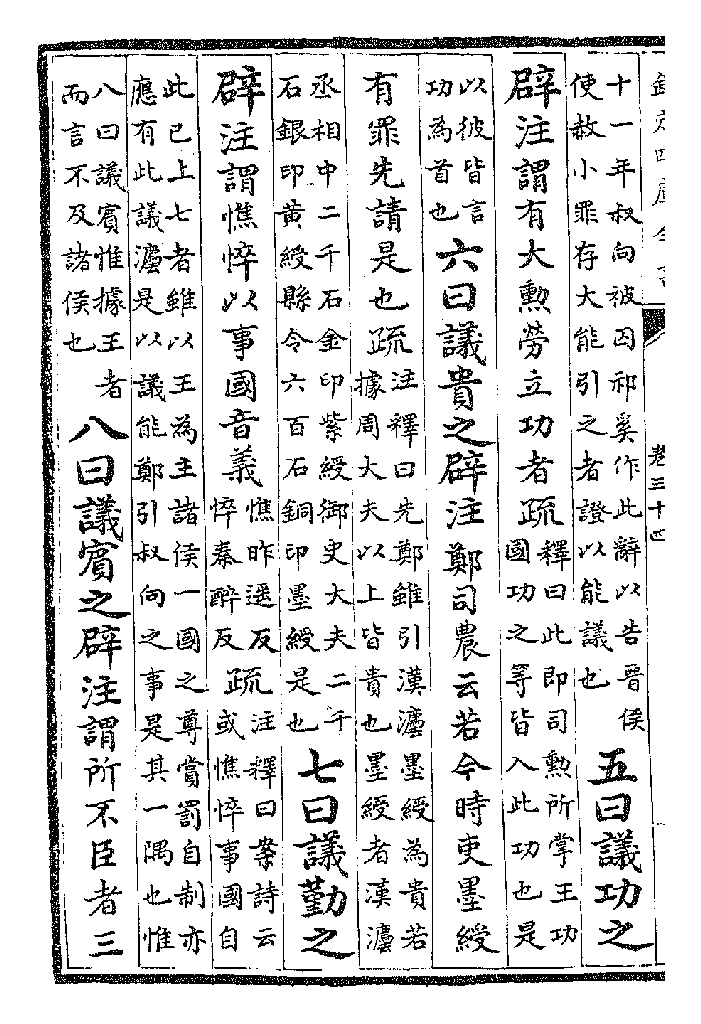 欽定四庫全書 卷三十四
十一年叔向被囚祁奚作此辭以告晉侯使赦小罪存大能引之者證以能議也五曰議功之
辟注謂有大勲勞立功者疏釋曰此即司勲所掌王功國功之等皆入此功也是
以彼皆言功為首也六曰議貴之辟注鄭司農云若今時吏墨綬
有罪先請是也疏注釋曰先鄭雖引漢灋墨綬為貴若據周大夫以上皆貴也墨綬者漢灋
丞相中二千石金印紫綬御史大夫二千石銀印黄綬縣令六百石銅印墨綬是也七曰議勤之
辟注謂憔悴以事國音義憔昨遥反悴秦醉反疏注釋曰案詩云或憔悴事國自
此已上七者雖以王為主諸侯一國之尊賞罰自制亦應有此議灋是以議能鄭引叔向之事是其一隅也惟
八曰議賓惟據王者而言不及諸侯也八曰議賓之辟注謂所不臣者三